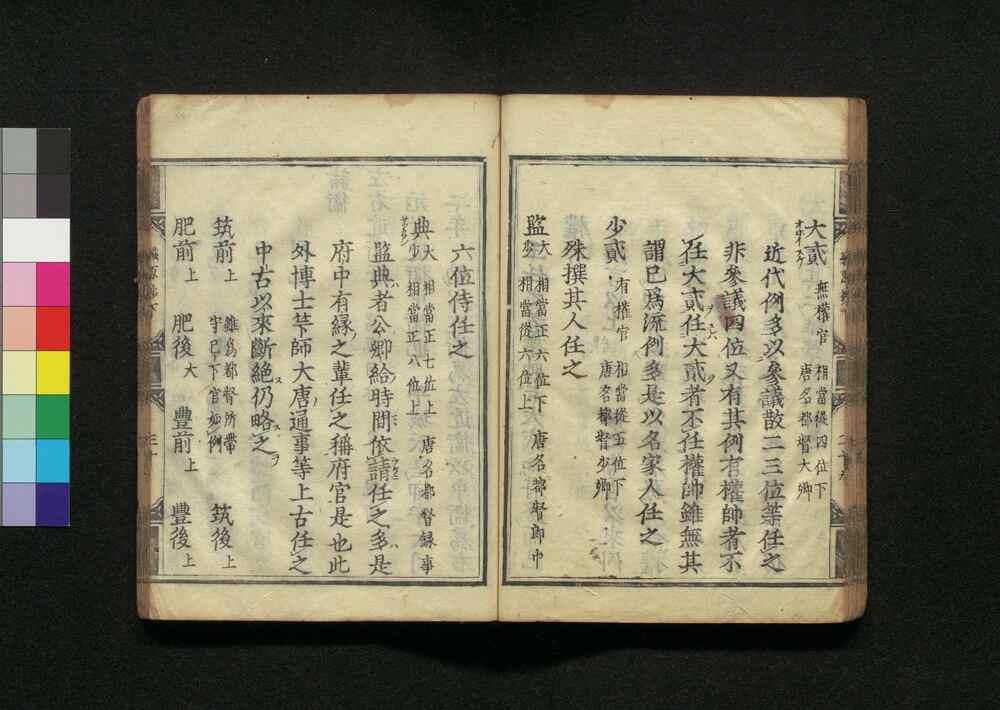 大貳 無權官 相當從四位下 唐名都督大卿
近代例多以參議散二三位等任之
非參議四位又有其例有權帥者不
任大貳任大貳者不任權帥雖無其
謂已爲流例多是以名家人任之
少貳 有權官 相當從五位下 唐名都督少卿
殊撰其人任之
監 大 相當正六位下 少 相當從六位上 唐名都督郎中
六位侍任之
典 大 相當正七位上 少 相當正八位上 唐名都督録事
監典者公卿給時間依請任之多是
府中有縁之輩任之稱府官是也此
外博士竿師大唐通事等上古任之
中古以來斷絶仍略之
筑前 上 雖爲都督所帶 宇已下官如例 筑後 上
肥前 上 肥後 大 豐前 上 豐後 上